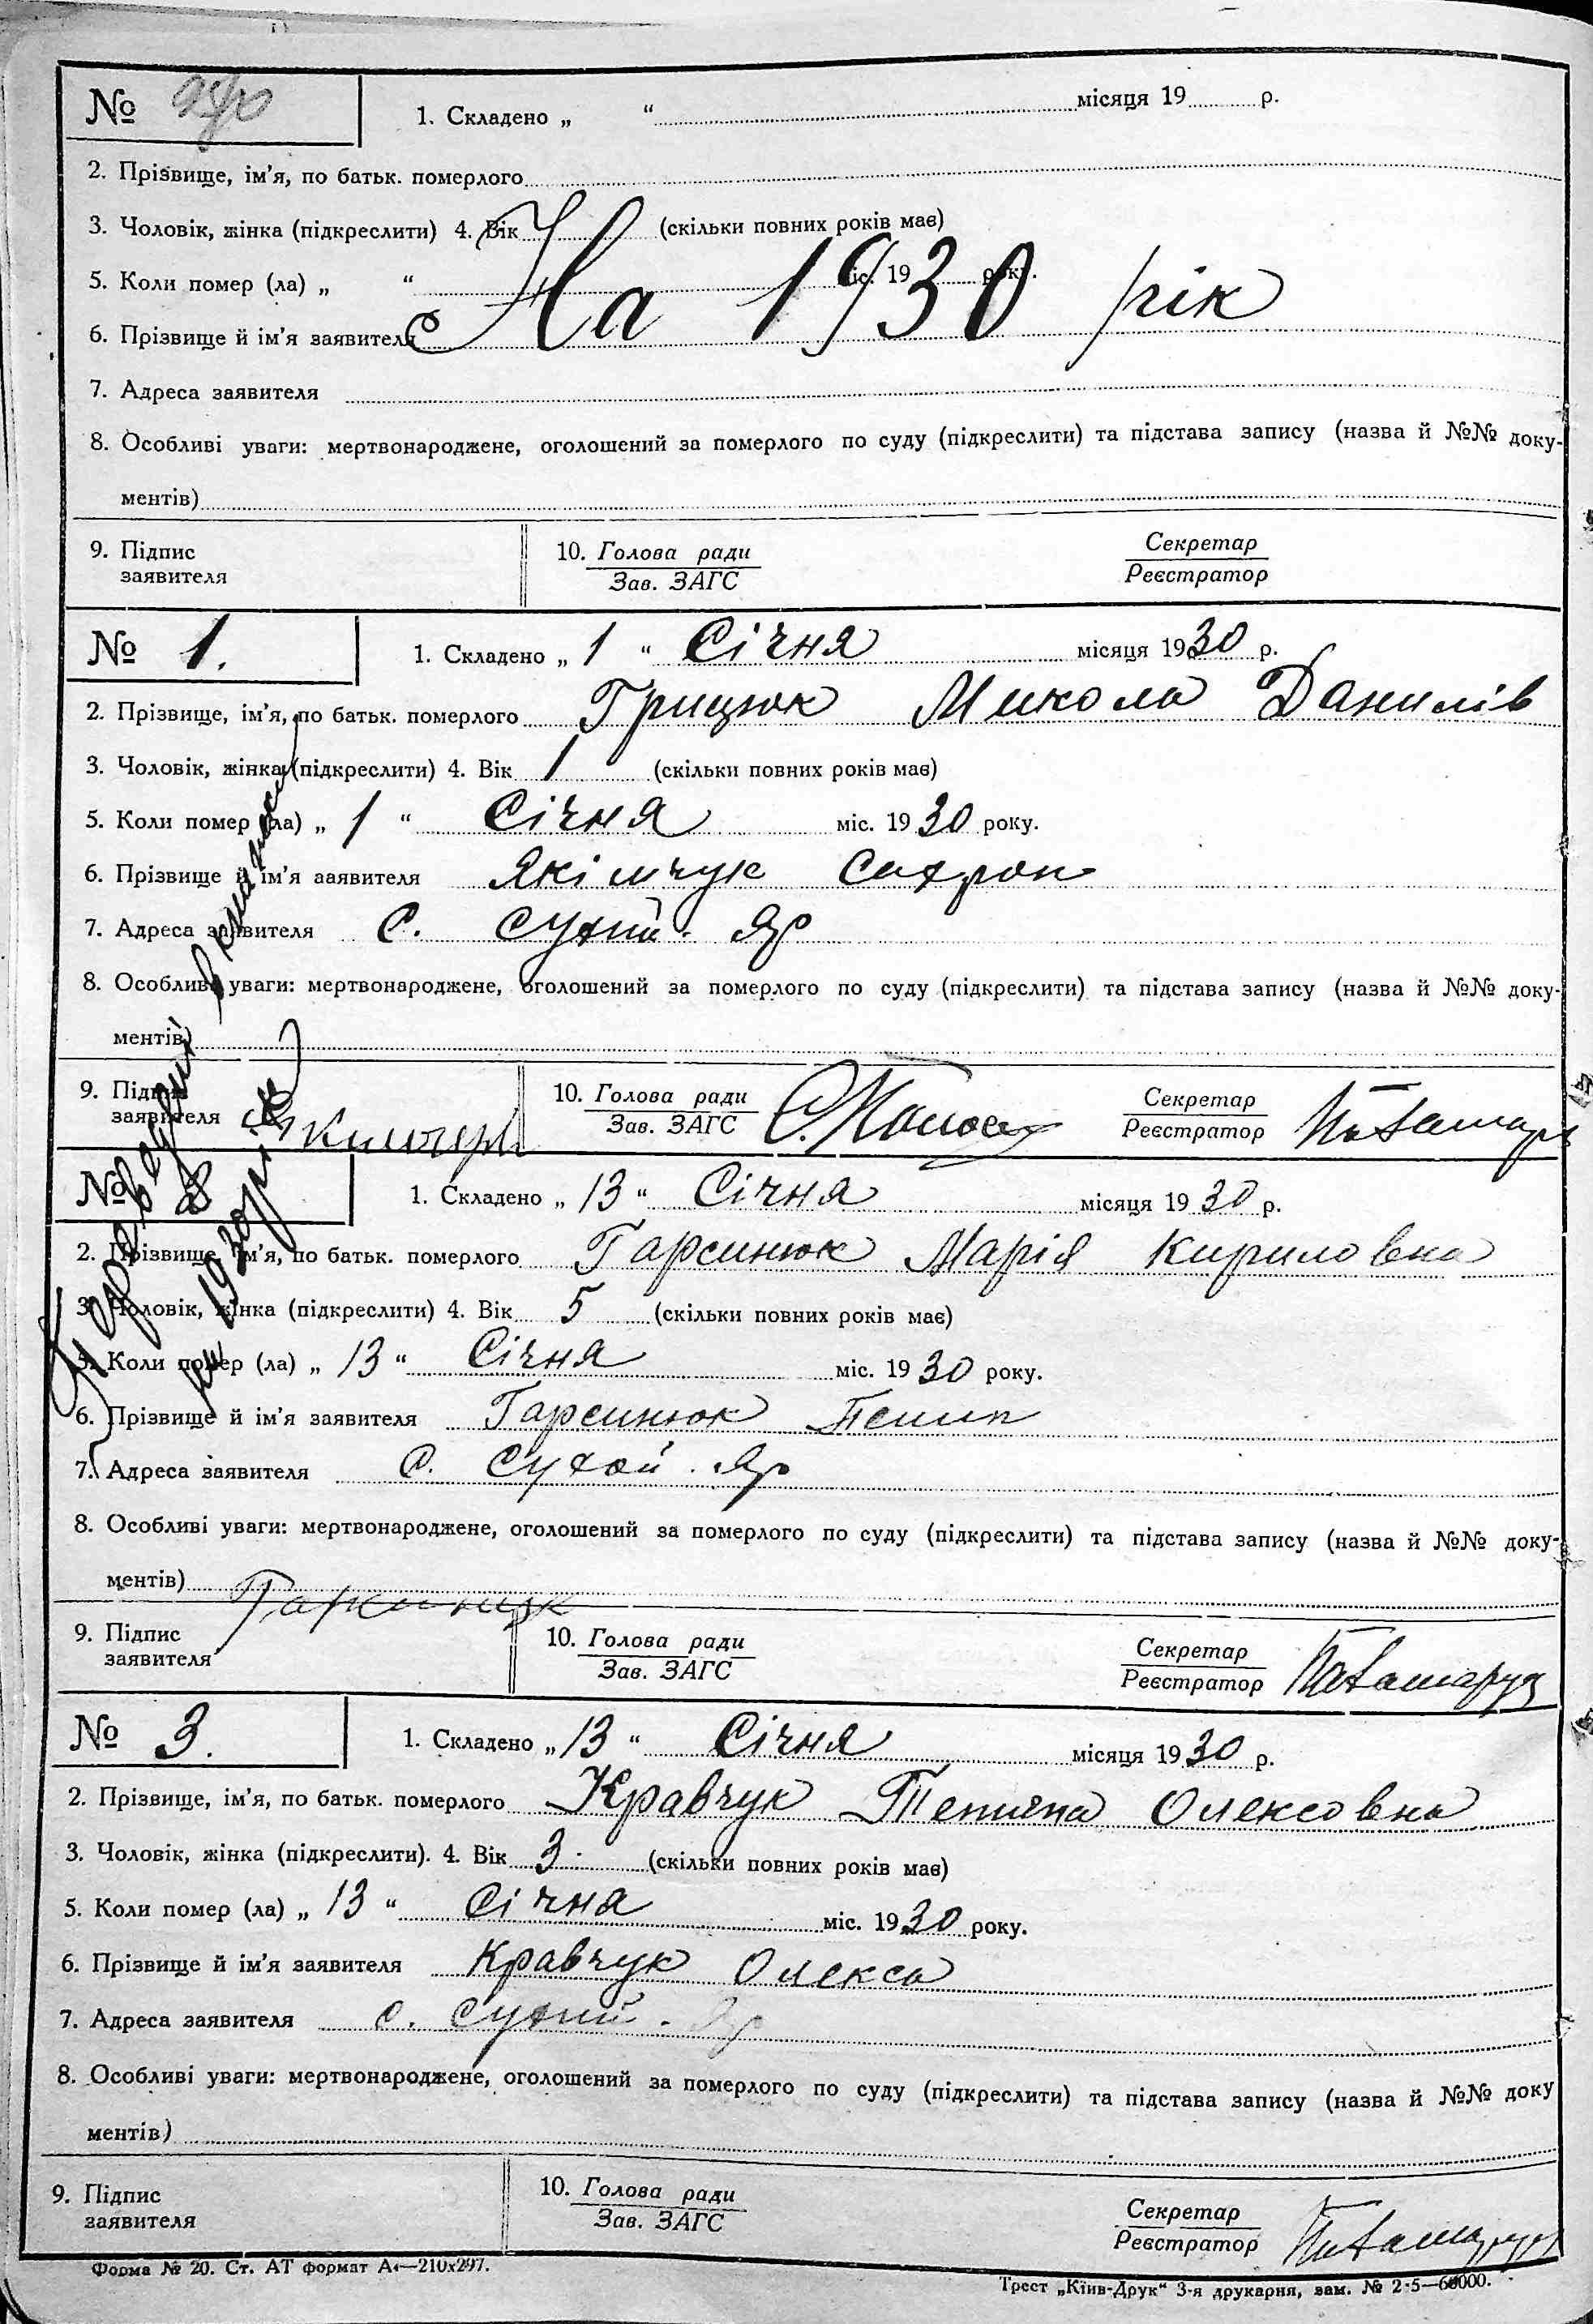 №
1. Складено „ “ місяця 19 р.
2. Прізвище, ім'я, по батьк. померлого
3. Чоловік, жінка (підкреслити) 4. Вік (скільки повних років має)
5. Коли помер (ла) „ “ міс. 19 року.
6. Прізвище й ім'я заявителя
На 1930 рік
7. Адреса заявителя
8. Особливі уваги: мертвонароджене, оголошений за померлого по суду (підкреслити) та підстава запису (назва й №№ доку-
ментів)
9. Підпис заявителя 10. Голова ради Зав. ЗАГС Секретар Реєстратор
№ 1. 1. Складено „ 1 “ Січня місяця 1930 р.
2. Прізвище, ім'я, по батьк. померлого Грицюк Микола Данилів
3. Чоловік, жінка (підкреслити) 4. Вік 1 (скільки повних років має)
5. Коли помер (ла) „ 1 “ Січня міс. 1930 року.
6. Прізвище й ім'я заявителя Якімчук Сахрон
7. Адреса заявителя с. Сухий Яр
8. Особливі уваги: мертвонароджене, оголошений за померлого по суду (підкреслити) та підстава запису (назва й №№ доку-
ментів)
9. Підпис заявителя 10. Голова ради Зав. ЗАГС Секретар Реєстратор
№ 2 1. Складено „ 13 “ Січня місяця 1930 р.
2. Прізвище, ім'я, по батьк. померлого Гарсинюк Марія Кириловна
3. Чоловік, жінка (підкреслити) 4. Вік 5 (скільки повних років має)
5. Коли помер (ла) „ 13 “ Січня міс. 1930 року.
6. Прізвище й ім'я заявителя Гарсинюк
7. Адреса заявителя с. Сухой Яр
8. Особливі уваги: мертвонароджене, оголошений за померлого по суду (підкреслити) та підстава запису (назва й №№ доку-
ментів)
9. Підпис заявителя 10. Голова ради Зав. ЗАГС Секретар Реєстратор
№ 3. 1. Складено „ 13 “ Січня місяця 1930 р.
2. Прізвище, ім'я, по батьк. померлого Кравчук Тетяна Олексовна
3. Чоловік, жінка (підкреслити). 4. Вік 3. (скільки повних років має)
5. Коли помер (ла) „ 13 “ Січня міс. 1930 року.
6. Прізвище й ім'я заявителя Кравчук Олекса
7. Адреса заявителя с. Сухий Яр
8. Особливі уваги: мертвонароджене, оголошений за померлого по суду (підкреслити) та підстава запису (назва й №№ доку
ментів)
9. Підпис заявителя 10. Голова ради Зав. ЗАГС Секретар Реєстратор
Форма № 20. Ст. АТ формат А4—210х297.
Трест „Київ-Друк“ 3-я друкарня, зам. № 2-5—60000.